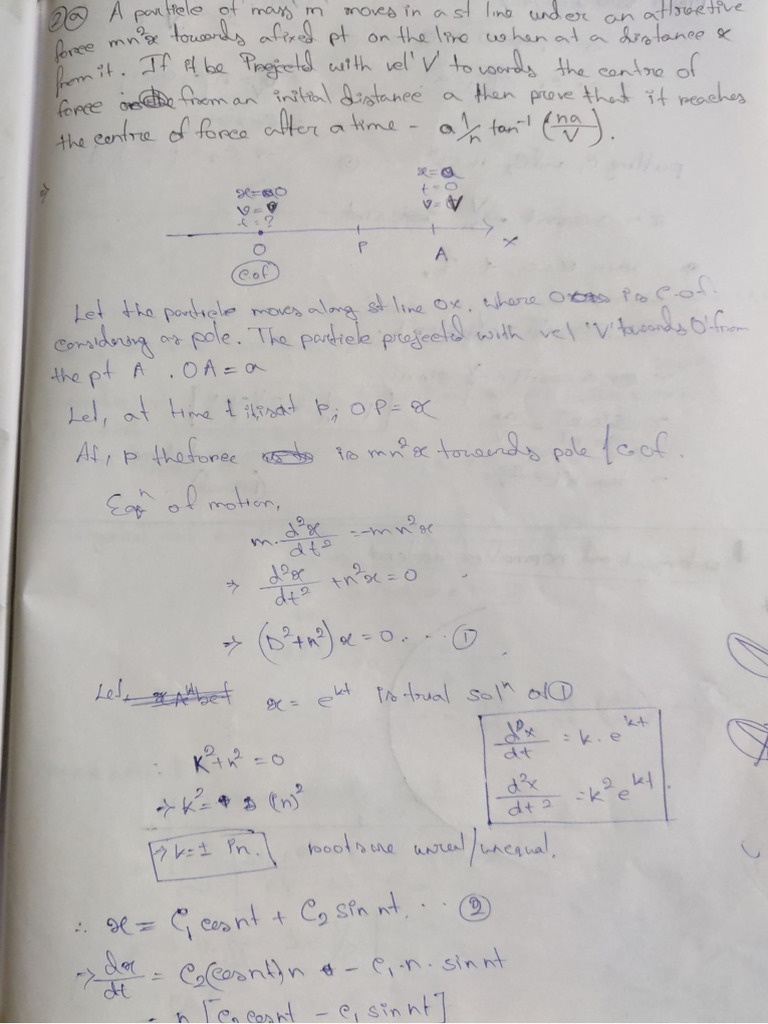 2(a) A particle of mass 'm' moves in a st line under an attractive
force mn²x towards a fixed pt on the line when at a distance x
from it. If it be Projectd with vel 'V' towards the centre of
force from an initial distance a then prove that it reaches
the centre of force after a time - a 1/n tan⁻¹ (na/V).
⇒
x=0 x=a
v= t=0
t=? v=V
O P A X
C.O.F
Let the particle moves along st line OX. where O is C.O.F.
considering as pole. The particle projected with vel 'V' towards 'O' from
the pt A . OA = a
Let, at time t it is at P; OP = x
At, P the force is mn²x towards pole / C.O.F.
Eqⁿ of motion,
m. d²x/dt² = -mn²x
⇒ d²x/dt² + n²x = 0
⇒ (D²+n²) x = 0 . . . . ①
Let, x = e^kt is trial solⁿ of ①
∴ k²+n² = 0
dx/dt = k. e^kt
⇒ k² = (in)²
d²x/dt² = k² e^kt
⇒ k = ± in. roots are unreal/unequal.
∴ x = C₁ cos nt + C₂ sin nt. . . ②
⇒ dx/dt = C₂(cos nt)n - C₁.n. sin nt
= n [C₂ cos nt - C₁ sin nt]